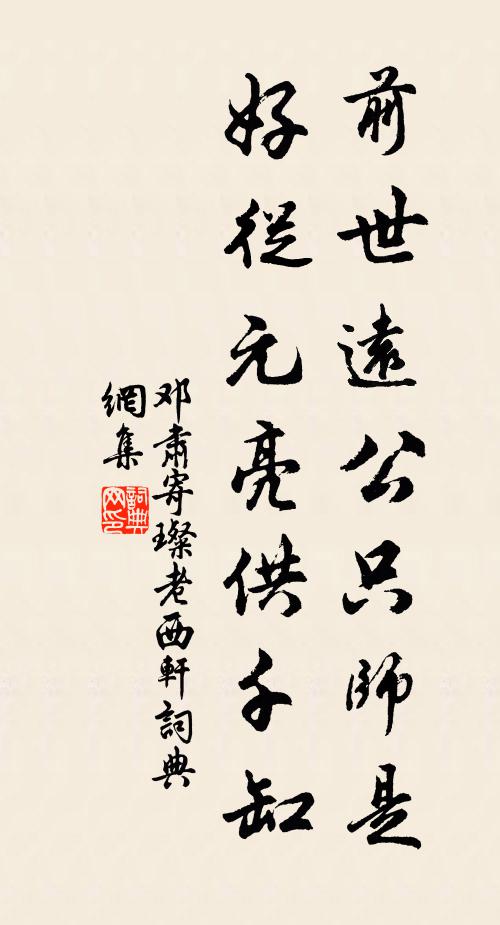 前世遠公只師是
好從元亮供千缸
邓肅寄璨老西軒詞典
網集
詞典网印